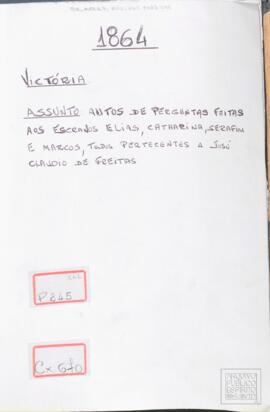 1864
VICTÓRIA
ASSUNTO AUTOS DE PERGUNTAS FEITAS
AOS ESCRAVOS ELIAS, CATHARINA, SERAFIM
E MARCOS, TODOS PERTECENTES A JOSÉ
CLAUDIO DE FREITAS
P245
Cx 670
ARQUIVO
PÚBLICO
ESPÍRITO
SANTO